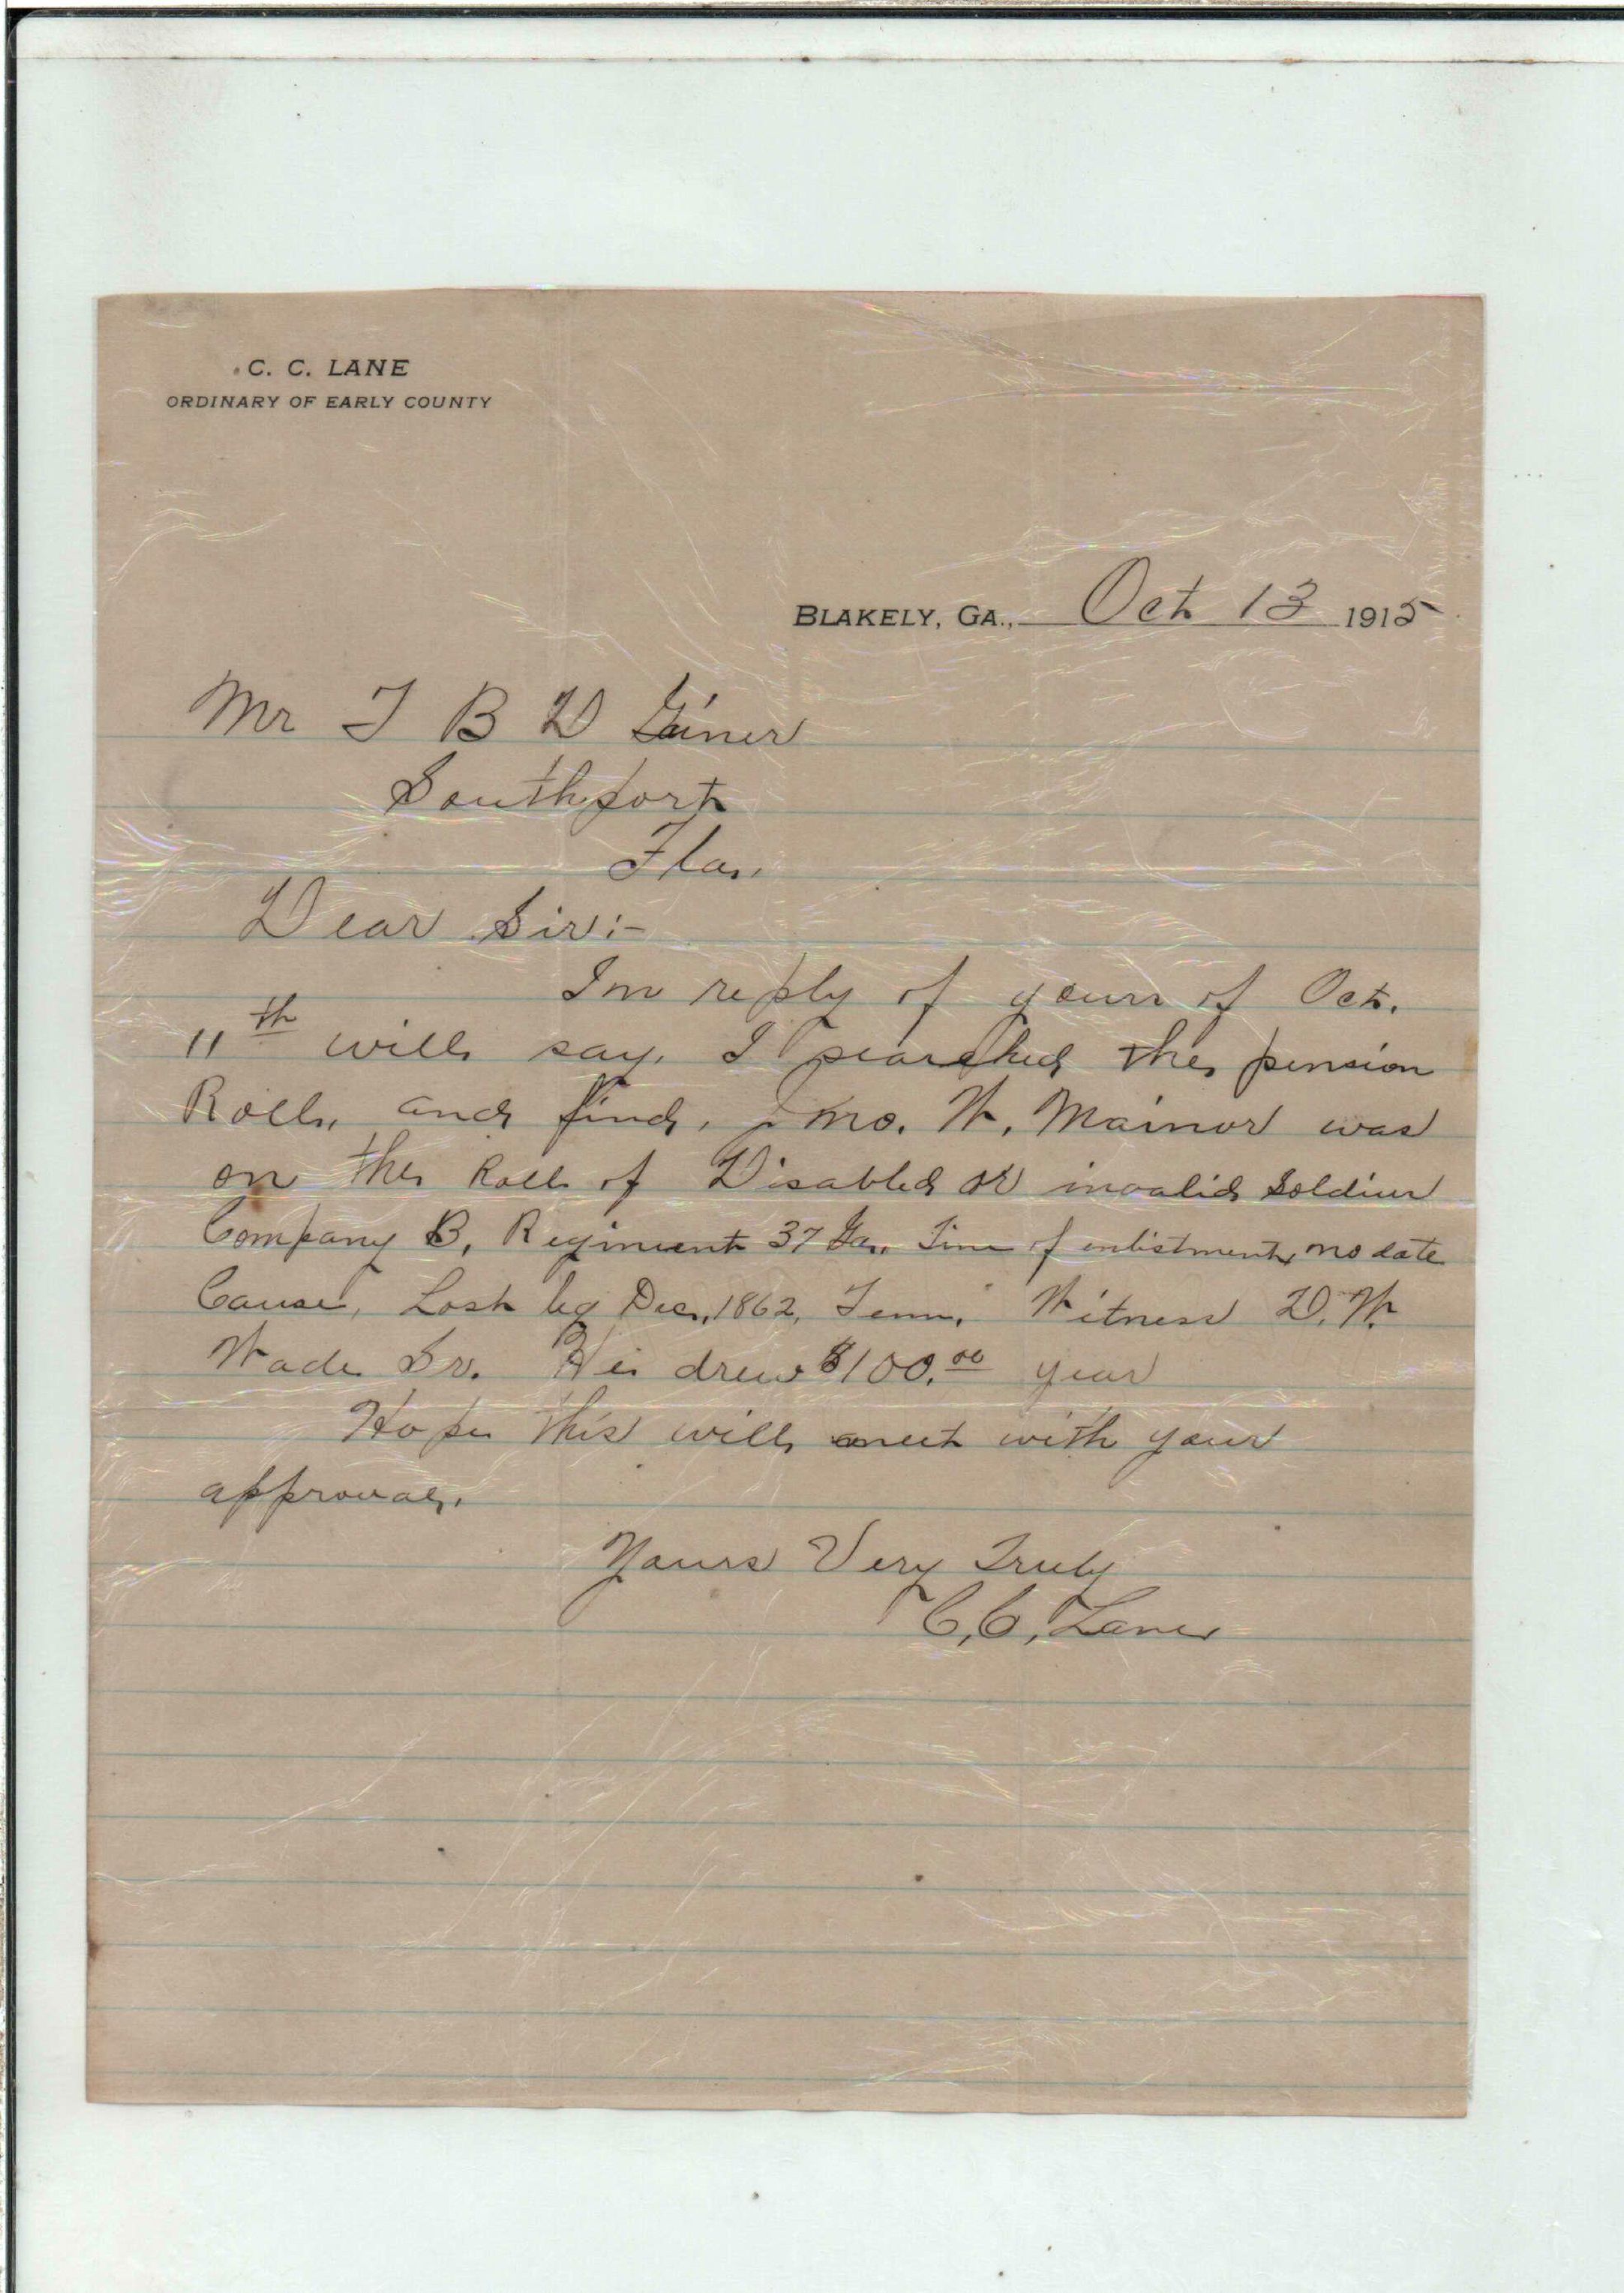 C. C. LANE
ORDINARY OF EARLY COUNTY
BLAKELY, GA., Oct 13 1915
Mr T B D Gainer
Southport
Fla.
Dear Sir:-
In reply of yours of Oct.
11th will say, I searched the pension
Roll, and find, Jno. W. Mainor was
on the Roll of Disabled or invalid Soldier
Company B, Regiment 37 Ga. Time of enlistment, no date
Cause, Lost leg Dec, 1862, Tenn. Witness D. W.
Wade Sr. He drew $100.00 year
Hope this will meet with your
approval.
Yours Very Truly
C. C. Lane